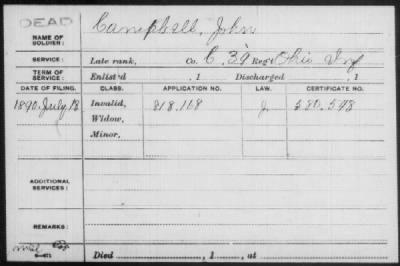 DEAD
Campbell, John
NAME OF
SOLDIER:
SERVICE: Late rank, Co. C, 39 Reg't Ohio Inf
TERM OF
SERVICE: Enlisted , 1 Discharged , 1
DATE OF FILING. CLASS. APPLICATION NO. LAW. CERTIFICATE NO.
1890. July 18 Invalid, 818,168 J. 580,598
Widow,
Minor,
ADDITIONAL
SERVICES:
REMARKS:
Died , 1 , at